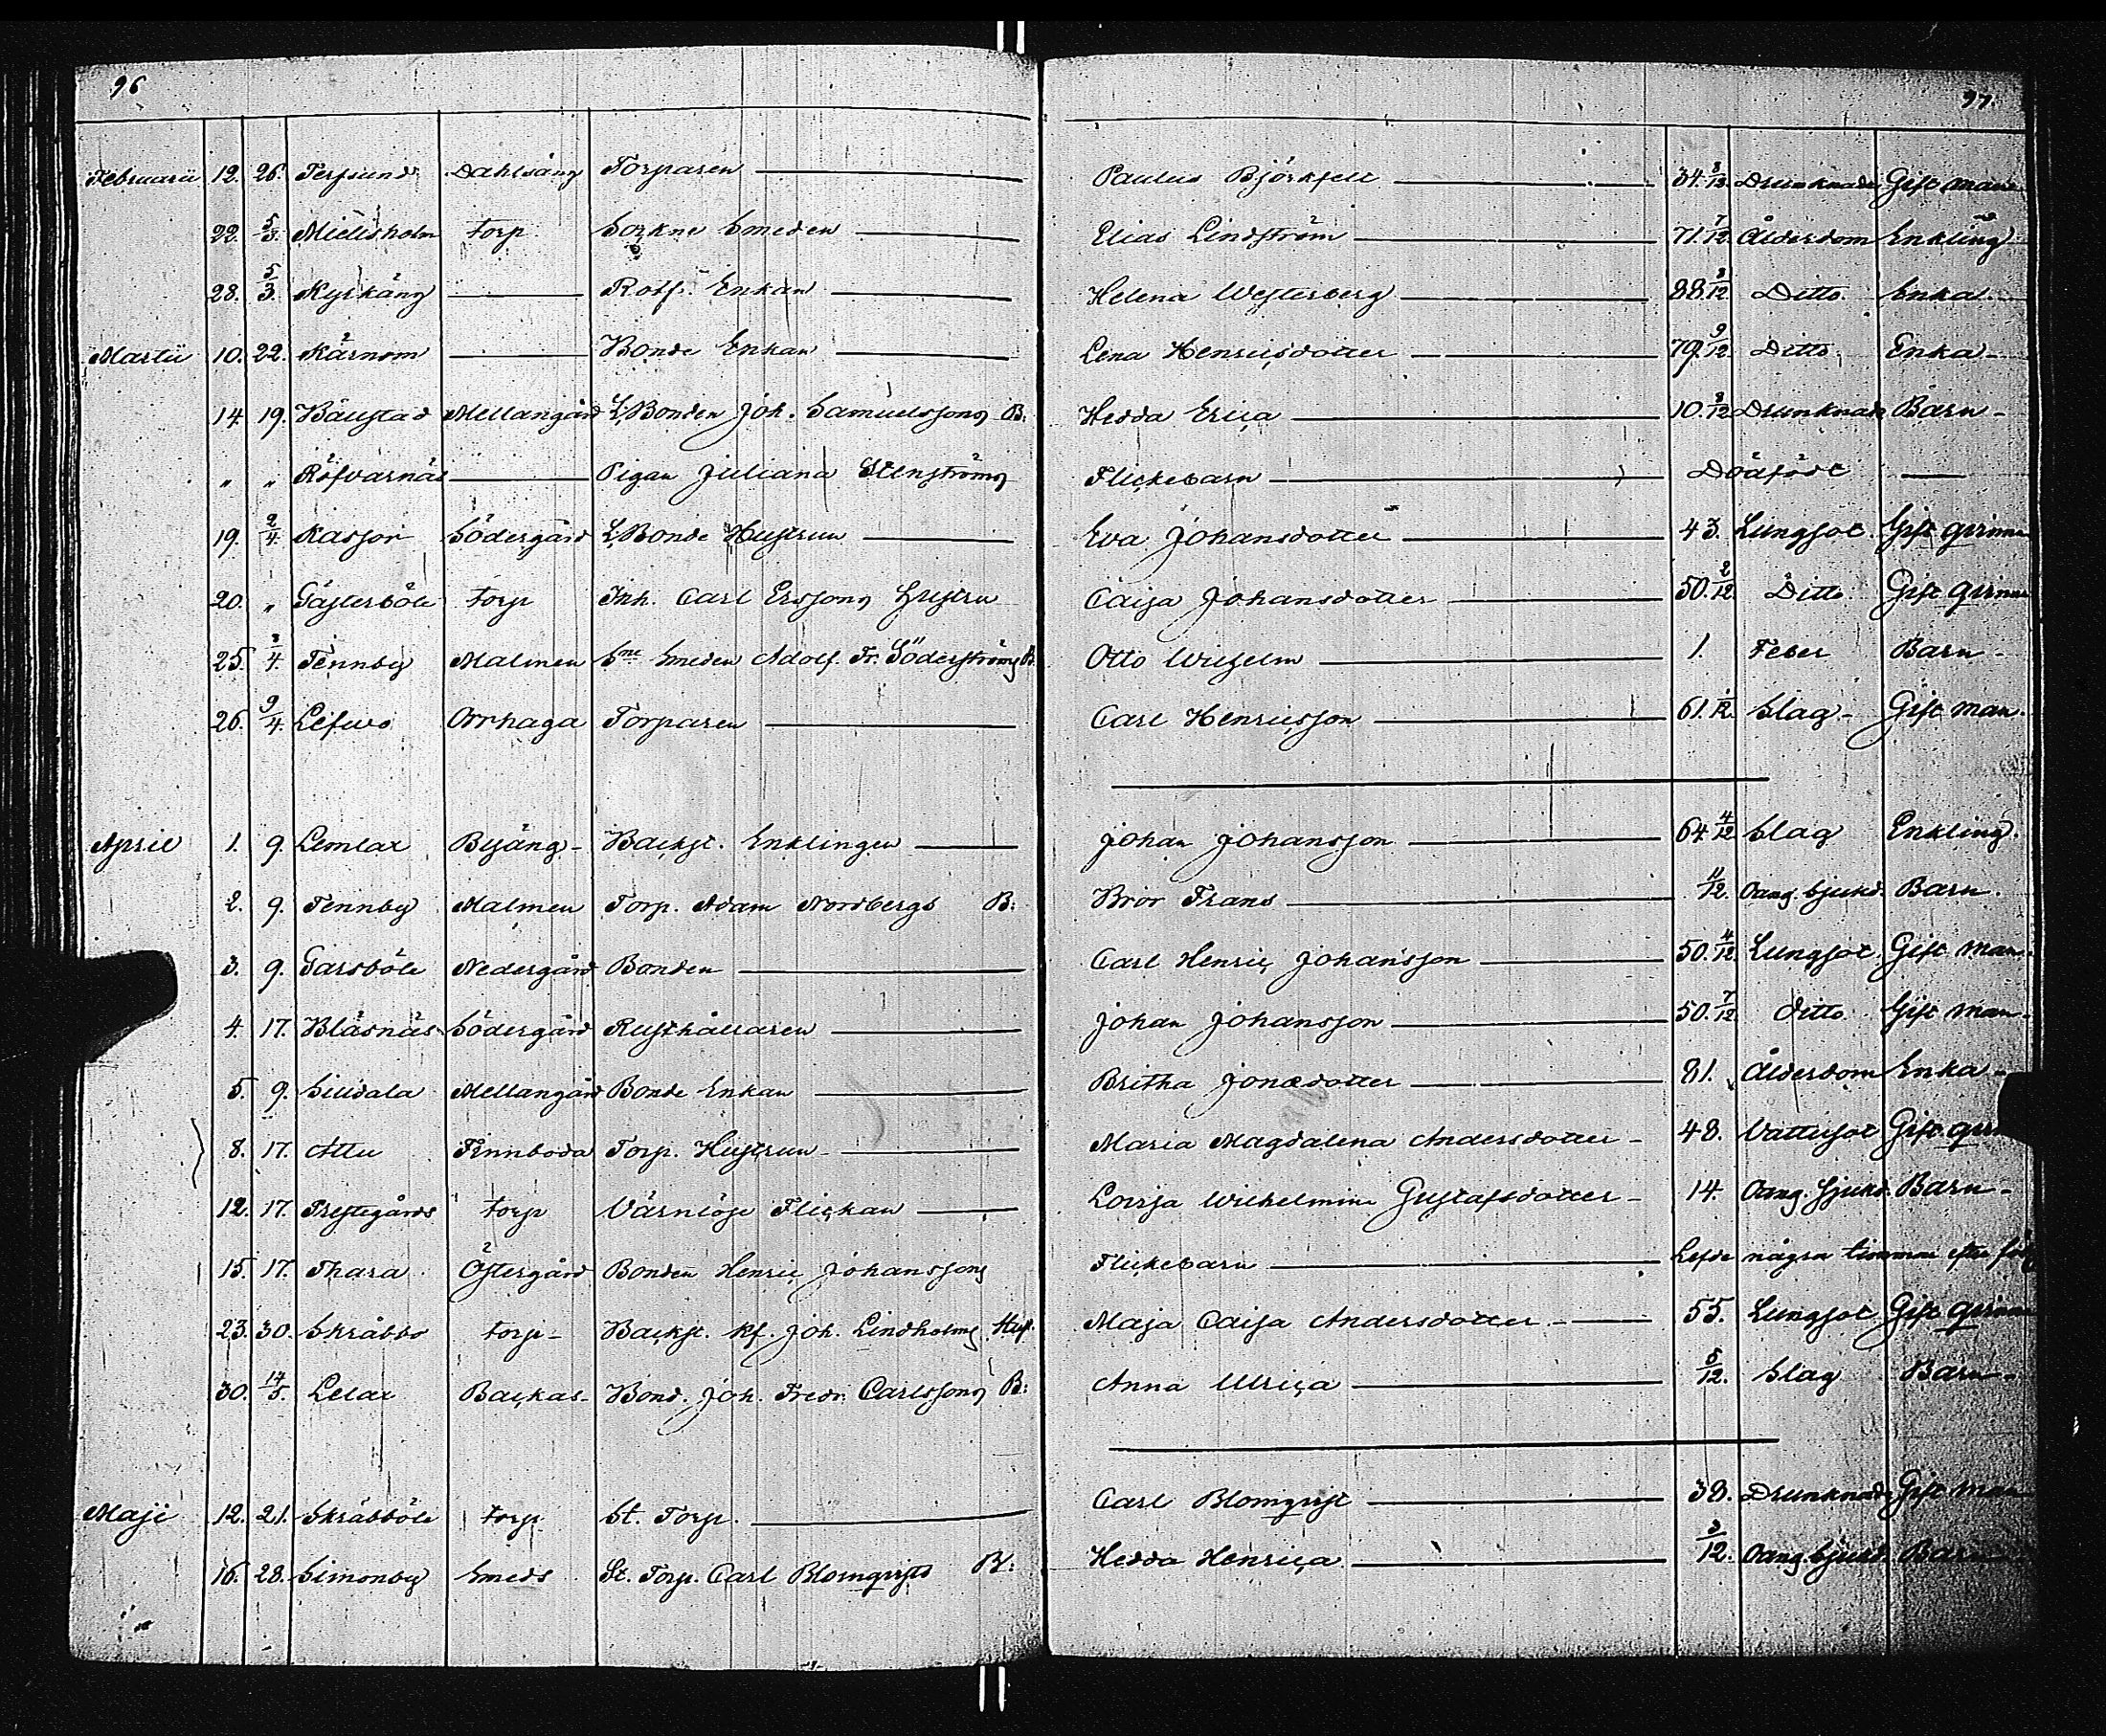 96
97.
Februarii 12. 26. Terfsund Dahlsäng Torparen Paulus Björkfelt 34. 3/12. Drunknade Gift man
22. 5/3. Mielisholm torp. Sockne Smeden Elias Lindström 71. 7/12. Ålderdom Enkling
28. 5/3. Kyrkäng Rotf. Enkan Helena Westerberg 88. 3/12. Ditto Enka
Martii 10. 22. Kärnom Bonde Enkan Lena Henricsdotter 79. 9/12. Ditto Enka
14. 19. Bällstad Mellangård L, Bonden Joh. Samuelssons B: Hedda Erica 10. 3/12 Drunknade Barn
" " Röfvarnäs Pigan Juliana Stenströms Flickebarn Dödfödt
19. 2/4. Kassor Södergård L, Bonde Hustrun Eva Johansdotter 43. Lungsot. Gift qvinna
20. " Gästerböle torp Inh. Carl Erssons Hustru Caisa Johansdotter 50. 2/12. Ditto Gift qvinna
25. 3/4. Tennby Malmen Sne Smeden Adolf. Fr. Söderströms B. Otto Wilhelm 1. Feber Barn
26. 9/4. Lefwo Orrhaga Torparen Carl Henricsson 61. 1/12. Slag Gift man.
April 1. 9. Lemlax Byäng Backst. Enklingen Johan Johansson 64 4/12 Slag Enkling.
2. 9. Tennby Malmen Torp. Adam Nordbergs B: Bror Frans 11/12. Oang. Sjukd. Barn.
3. 9. Garsböle Nedergård Bonden Carl Henric Johansson 50. 4/12. Lungsot Gift man
4. 17. Bläsnäs Södergård Rusthållaren Johan Johansson 50. 7/12. Ditto Gift man
5. 9. Sildala Mellangård Bonde Enkan Britha Jonædotter 81. Ålderdom Enka
8. 17. Attu Finnboda Torp. Hustrun Maria Magdalena Andersdotter 48. Vattusot Gift
12. 17. Prestgårds torp Värnlöse Flickan Lovisa Wilhelmina Gustafsdotter 14. Oang. Sjukd. Barn
15. 17. Thara Östergård Bonden Henric Johanssons Flickebarn Lefde några timmar efter
23. 30. Skräbbo torp Backst. Kf. Joh. Lindholms Hus. Maja Caisa Andersdotter 55. Lungsot Gift qvinna
30. 14/5. Lelax Backas Bond. Joh. Fredr. Carlssons B: Anna Ulrica 5/12. Slag Barn
Maji 12. 21. Skräbböle torp St. Torp. Carl Blomqvist 38. Drunknade Gift man
16. 28. Simonby Smeds St. Torp. Carl Blomqvists B: Hedda Henrica 3/12. Oang. Sjukd. Barn